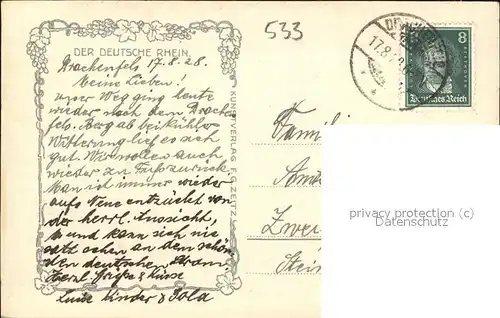 533
DER DEUTSCHE RHEIN.
Drachenfels 17.8.28.
Meine Lieben!
unser Weg ging heute
wieder nach dem Drach
fels. Bergab bei kühler
Witterung lief es sich
gut. Wir wollen auch
wieder zu Fuß zurück
Man ist immer wieder
aufs Neue entzückt von
der herrl. Aussicht,
und kann sich nie
satt sehen an dem schön
den deutschen Strom.
Herzl. Grüße & Küsse
Eure Kinder &
KUNSTVERLAG F.G. ZEITZ
17.8.
8
Deutsches Reich
Famil
Zwei
Stein
privacy protection copyright(c)
Datenschutz